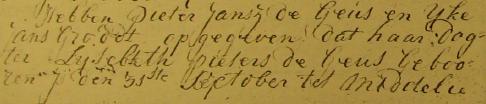 Hebben Pieter Jansz de Geus en Yke
Jans Groodt opgegeven dat haar Dog-
ter Lysebeth Piesers de Geus Geboo-
ren is den 31ste October tot Middelie